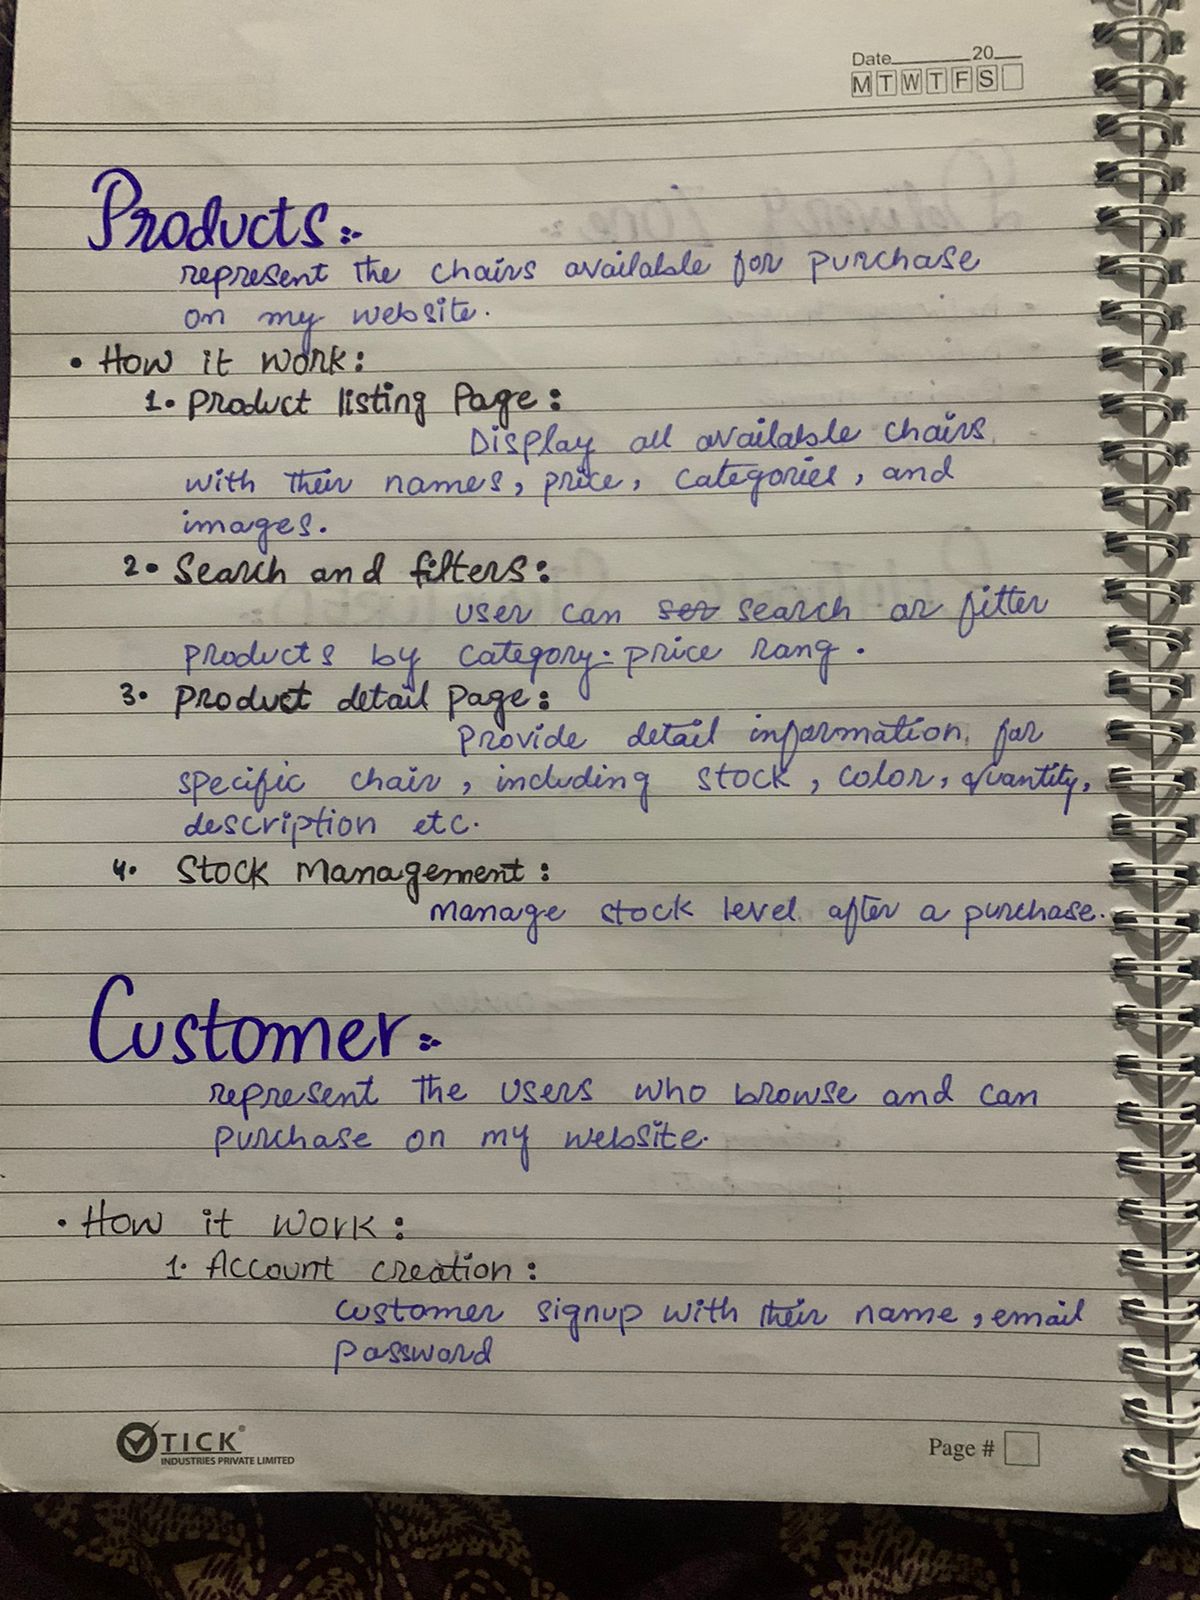 Date 20
M T W T F S
Products:-
represent the chairs available for purchase
on my website.
• How it work:
1. Product listing Page:
Display all available chairs
with their names, price, categories, and
images.
2. Search and filters:
user can ser search or fitter
products by category. price rang.
3. Product detail page:
Provide detail information for
specific chair, including stock, color, quantity,
description etc.
4. Stock Management:
manage stock level after a purchase.
Customer:-
represent the users who browse and can
purchase on my website.
• How it work:
1. Account creation:
customer signup with their name, email
password
TICK®
INDUSTRIES PRIVATE LIMITED
Page #